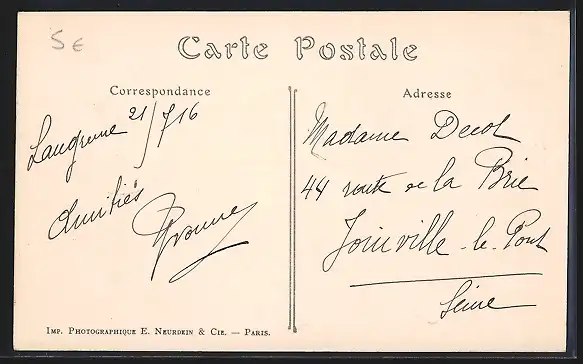 5 €
Carte Postale
Correspondance
Adresse
Langrune 21/7 16
Amitiés
Yvonne
Madame Decol
44 route de la Brie
Joinville-le-Pont
Seine
IMP. PHOTOGRAPHIQUE E. NEURDEIN & CIE. — PARIS.